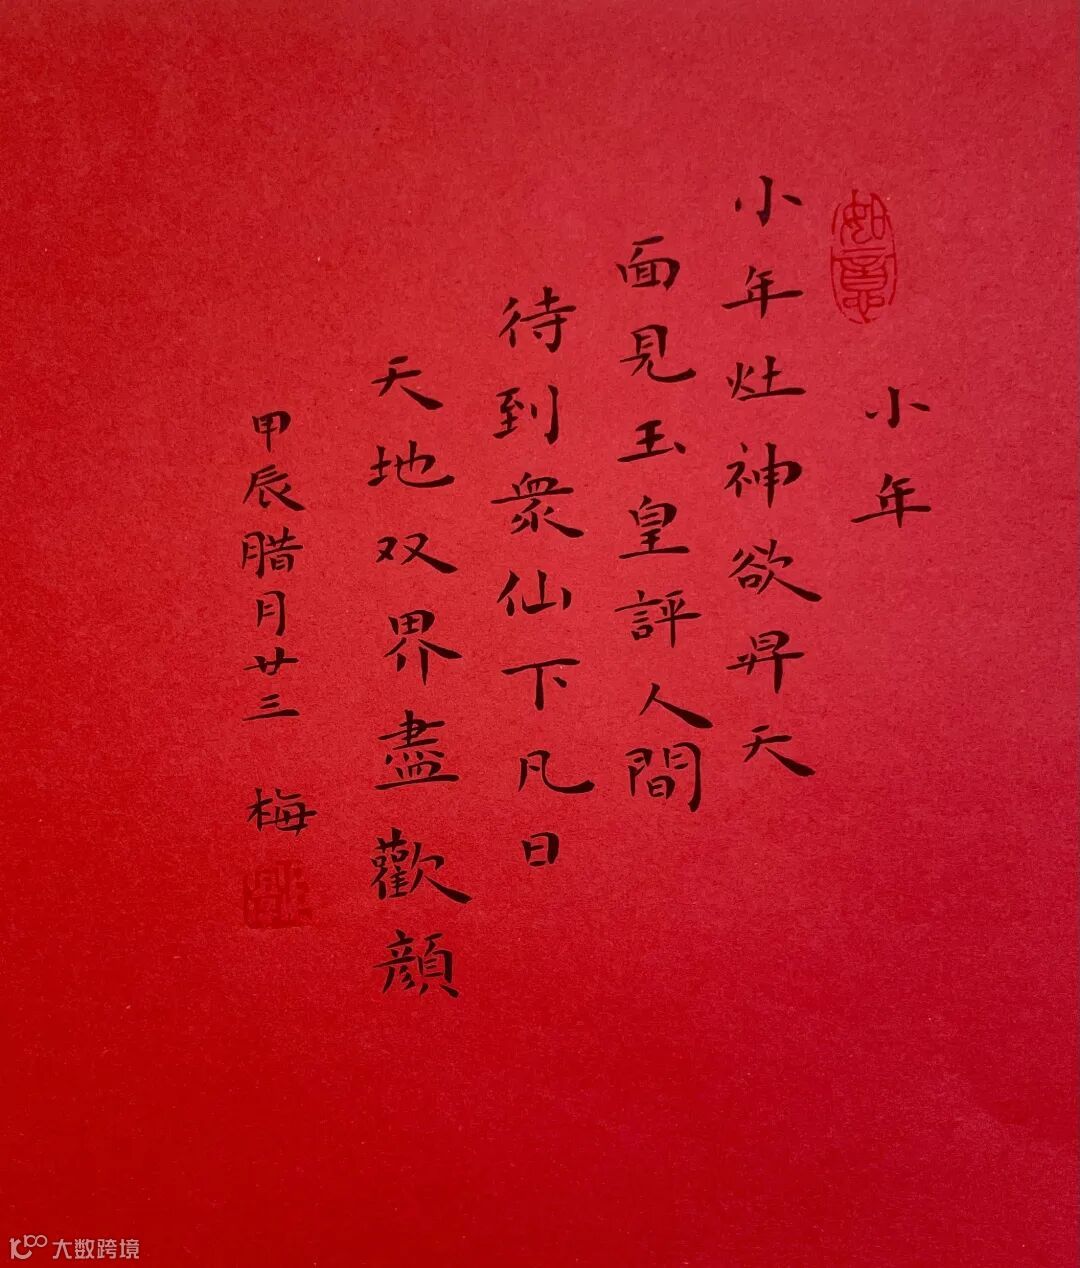 如意
小年
小年灶神欲昇天
面見玉皇評人間
待到衆仙下凡日
天地双界盡歡顔
甲辰腊月廿三 梅
大数跨境